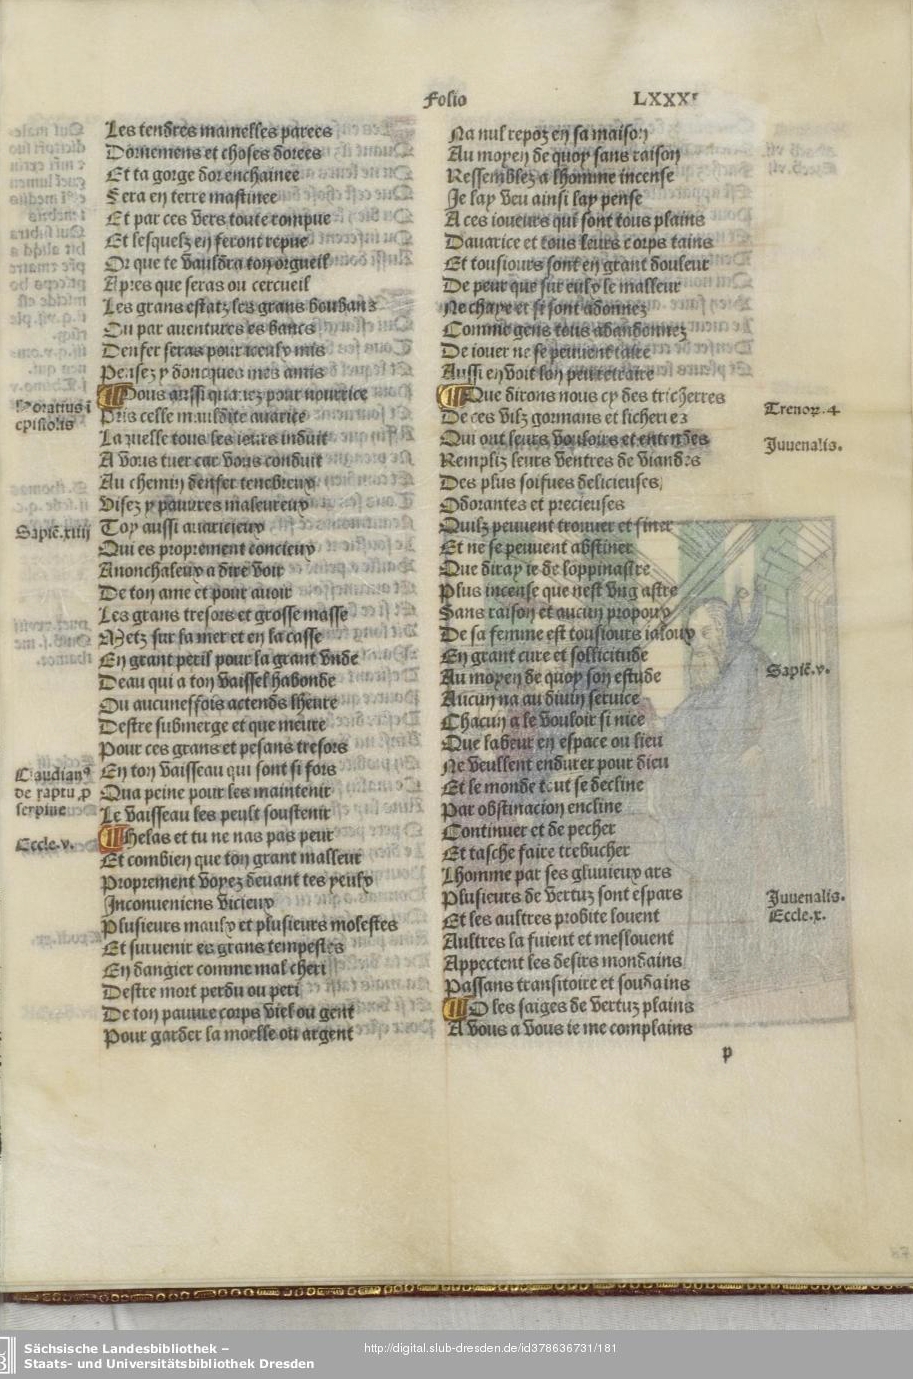 Folio LXXX
Les tendres mamelles parees
Dornemens et choses dorees
Et ta gorge dor enchainee
Sera en terre mastinee
Et par ces vers toute rompue
Et lesquelz en feront repue
Or que te vauldra ton orgueil
Apres que seras ou cercueil
Les grans estatz les grans boubans
Ou par auentures es bancs
Denfer seras pour iceulx mis
Pensez y doncques mes amis
Vous aussi qui auez pour nourrice
Pris celle mauldite auarice
Laquelle tous les iours induit
A vous tuer car vous conduit
Au chemin denfer tenebreux
Visez y pouures maleureux
Toy aussi auaricieux
Qui es proprement concieux
Anonchaleux a dire voir
De ton ame et pour auoir
Les grans tresors et grosse masse
Metz sur la mer et en la casse
En grant peril pour la grant vnde
Deau qui a ton vaissel habonde
Ou aucuneffois actends lheure
Destre submerge et que meure
Pour ces grans et pesans tresors
En ton vaisseau qui sont si fors
Qua peine pour les maintenir
Le vaisseau les peult soustenir
Helas et tu ne nas pas peur
Et combien que ton grant malleur
Proprement voyez deuant tes yeulx
Inconueniens vicieux
Plusieurs maulx et plusieurs molestes
Et suruenir es grans tempestes
En dangier comme mal cheri
Destre mort perdu ou peri
De ton pauure corps viel ou gent
Pour garder la moelle ou argent
Horatius i
epistolis
Sapie. xiiij
Claudianus
de raptu p
serpine
Eccle. v.
Na nul repoz en sa maison
Au moyen de quoy sans raison
Ressemblez a lhomme incense
Je lay veu ainsi lay pense
A ces ioueurs qui sont tous plains
Dauarice et tous leurs corps tains
Et tousiours sont en grant douleur
De peur que sur eulx le malleur
Ne chaye et si sont adonnez
Comme gens tous abandonnez
De iouer ne se peuuent taire
Aussi en voit lon peu retraire
Que dirons nous cy des tricherres
De ces vilz gormans et licherres
Qui ont leurs vouloirs et entendes
Rempliz leurs ventres de viandes
Des plus soifues delicieuses
Odorantes et precieuses
Quilz peuuent trouuer et finer
Et ne se peuuent abstiner
Que diray ie de loppinastre
Plus incense que nest vng astre
Sans raison et aucun propoux
De sa femme est tousiours ialoux
En grant cure et sollicitude
Au moyen de quoy son estude
Aucun na au diuin seruice
Chacun a le vouloir si nice
Que labeur en espace ou lieu
Ne veullent endurer pour dieu
Et le monde tout se decline
Par obstinacion encline
Continuer et de pecher
Et tasche faire trebucher
Lhomme par ses gluuieux ars
Plusieurs de vertuz sont espars
Et les aultres probite louent
Aultres la fuient et meslouent
Appectent les desirs mondains
Passans transitoire et soudains
O les saiges de vertuz plains
A vous a vous ie me complains
Trenor. 4
Juuenalis.
Sapie. v.
Juuenalis.
Eccle. x.
p
Sächsische Landesbibliothek –
Staats- und Universitätsbibliothek Dresden
http://digital.slub-dresden.de/id378636731/181